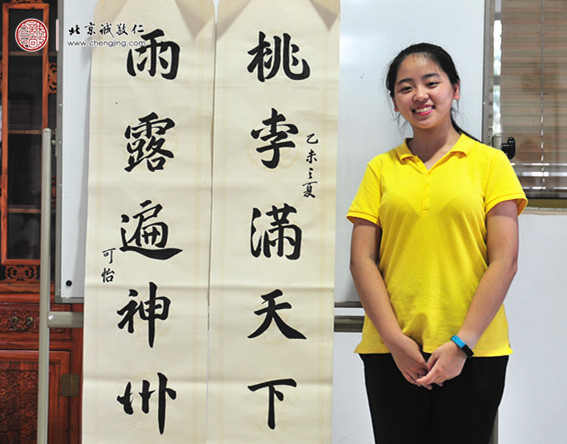 北京诚敬仁
www.chengjing.com
桃李满天下
乙未之夏
雨露遍神州
可怡